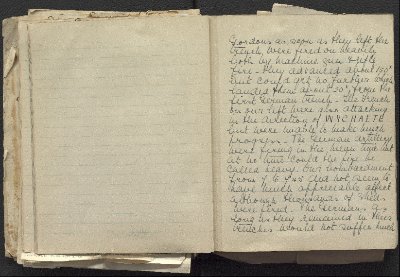 Gordons as soon as they left the
trench, were fired on heavily
both by machine gun & rifle
fire. They advanced about 150x
but could get no further & got
landed there about 50x from the
first German trench. The French
on our left were also attacking
in the direction of WYCHAETE
but were unable to make much
progress. The German artillery
were firing in the mean time but
at no time could the fire be
called heavy. Our bombardment
from 7 to 7.45 did not seem to
have much appreciable effect
although thousands of shells
were fired. The Germans as
long as they remained in their
trenches would not suffer much